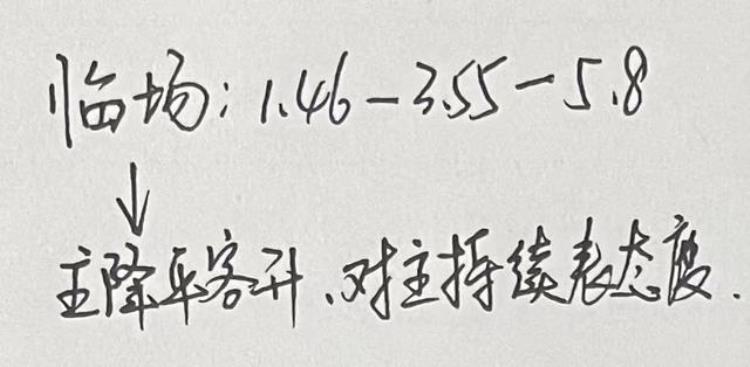 临场:1.46-3.55-5.8
↓
主降平客升、对主持续表态度.